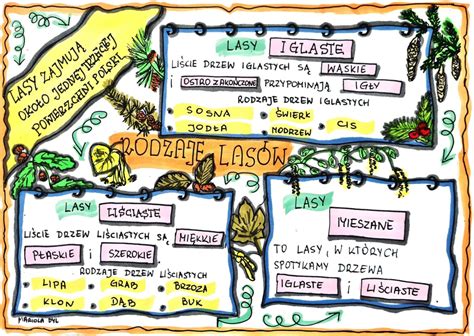 LASY ZAJMUJĄ
OKOŁO JEDNEJ TRZECIEJ
POWIERZCHNI POLSKI
LASY IGLASTE
LIŚCIE DRZEW IGLASTYCH SĄ WĄSKIE
I OSTRO ZAKOŃCZONE PRZYPOMINAJĄ IGŁY
RODZAJE DRZEW IGLASTYCH
SOSNA ŚWIERK CIS
JODŁA MODRZEW
RODZAJE LASÓW
LASY LIŚCIASTE
LIŚCIE DRZEW LIŚCIASTYCH SĄ MIĘKKIE
PŁASKIE I SZEROKIE
RODZAJE DRZEW LIŚCIASTYCH
LIPA GRAB BRZOZA
KLON DĄB BUK
LASY
MIESZANE
TO LASY, W KTÓRYCH
SPOTYKAMY DRZEWA
IGLASTE I LIŚCIASTE
MARIOLA DYL